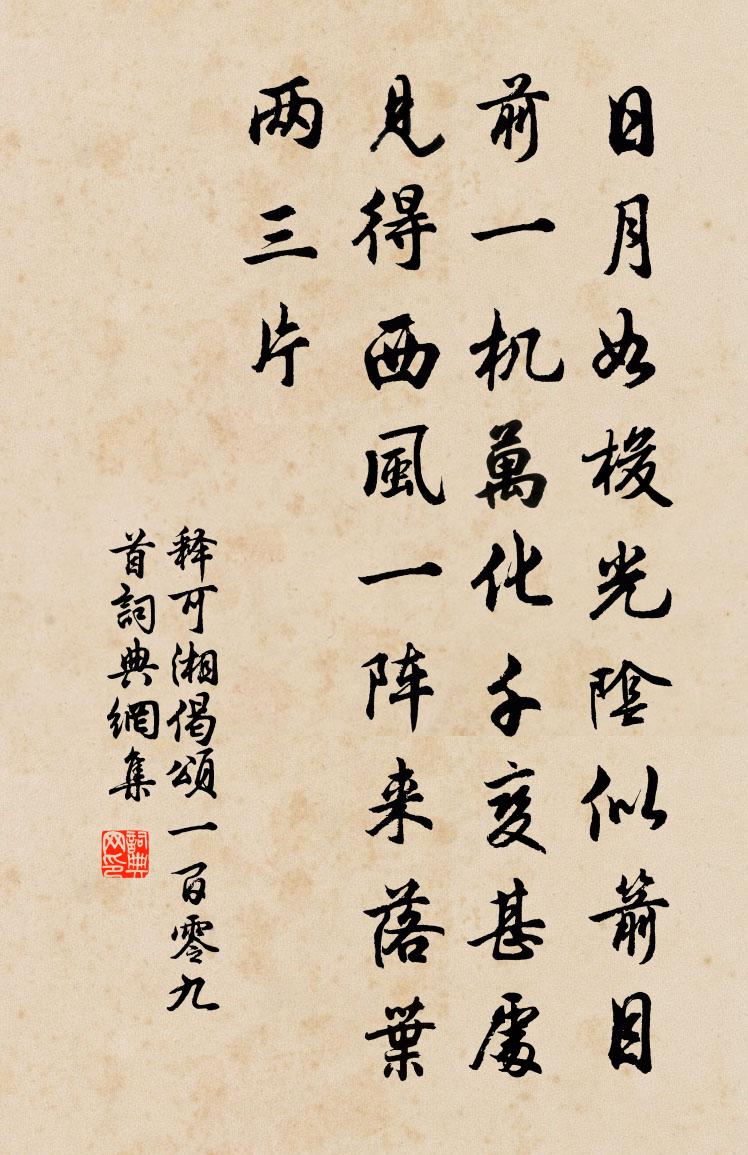 日月如梭光陰似箭目
前一机萬化千变甚處
見得西風一阵来落葉
两三片
释可湘偈頌一百零九
首詞典網集
詞典
网印